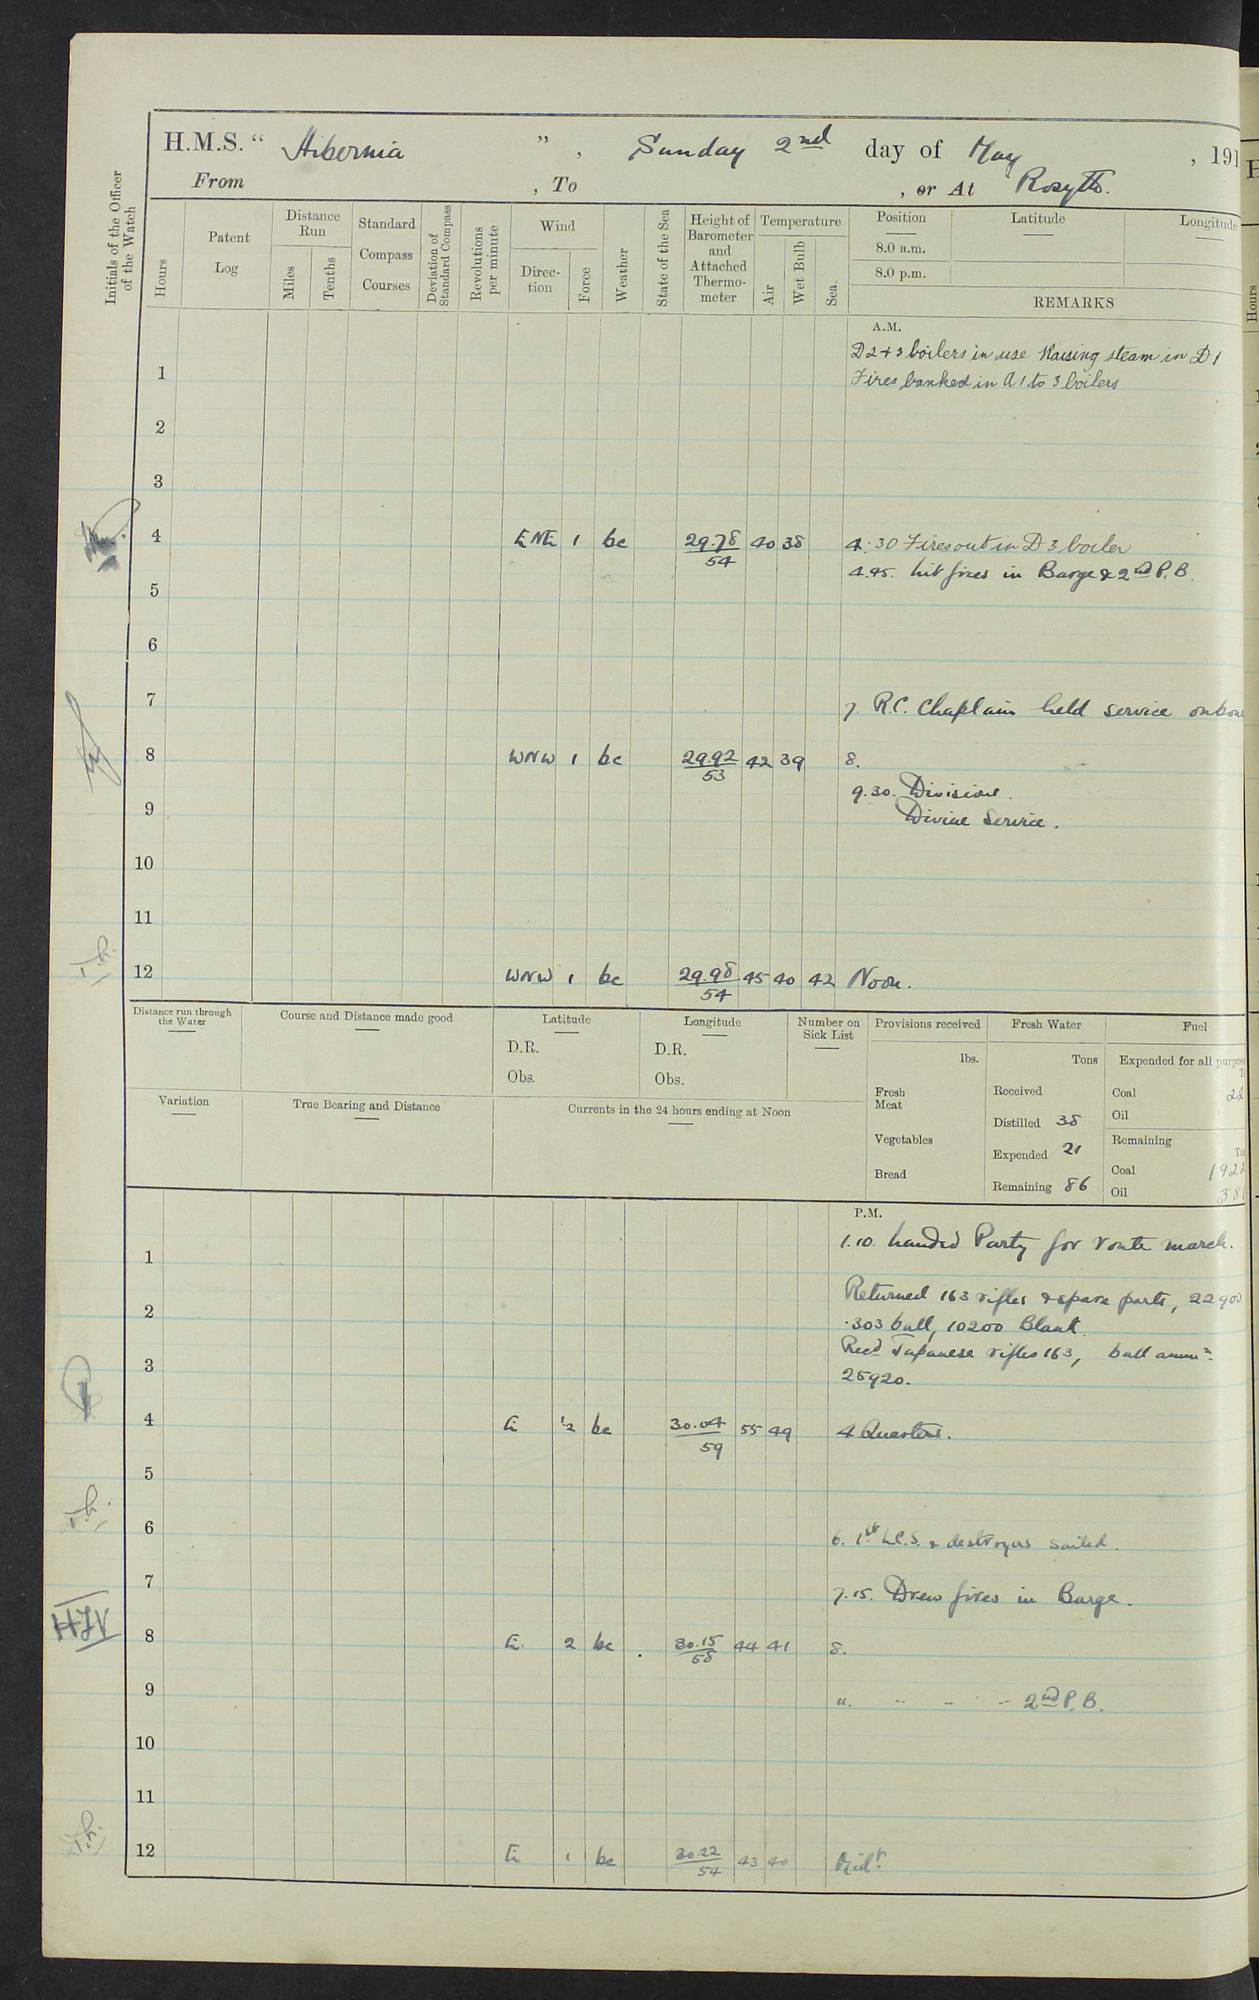 H.M.S. " Hibernia " , Sunday 2nd day of May , 191
From , To , or At Rosyth.
Initials of the Officer of the Watch
Hours
Patent Log
Distance Run
Miles
Tenths
Standard Compass Courses
Deviation of Standard Compass
Revolutions per minute
Wind
Direc-tion
Force
Weather
State of the Sea
Height of Barometer and Attached Thermo-meter
Temperature
Air
Wet Bulb
Sea
Position
Latitude
Longitude
8.0 a.m.
8.0 p.m.
REMARKS
A.M.
D 2+3 boilers in use Raising steam in D 1
1 Fires banked in A 1 to 3 boilers
2
3
4 ENE 1 bc 29.78 40 38 4.30 Fires out in D 3 boiler
54
4.45. Lit fires in Barge & 2nd P.B.
5
6
7 7. R.C. Chaplain held service onboa
8 WNW 1 bc 29.92 42 39 8.
53
9.30. Divisions.
9 Divine Service.
10
11
12 WNW 1 bc 29.98 45 40 42 Noon.
54
Distance run through the Water
Course and Distance made good
Latitude
D.R.
Obs.
Longitude
D.R.
Obs.
Number on Sick List
Provisions received
lbs.
Fresh Meat
Vegetables
Bread
Fresh Water
Tons
Received
Distilled 38
Expended 21
Remaining 86
Fuel
Expended for all purpos
Coal 22
Oil
Remaining
Coal 192
Oil 381
Variation
True Bearing and Distance
Currents in the 24 hours ending at Noon
P.M.
1 1.10. Landed Party for route march.
2 Returned 163 rifles & spare parts, 22900
.303 ball, 10200 Blank.
3 Recd Japanese rifles 163, ball ammn.
25920.
4 E ½ bc 30.04 55 49 4 Quarters.
59
5
6 6. 1st L.C.S. & destroyers sailed.
7 7.15. Drew fires in Barge.
HJV
8 E 2 bc 30.15 44 41 8.
58
9 " " " " 2nd P.B.
10
11
12 E 1 bc 30.22 43 40 Midt
54
Hours